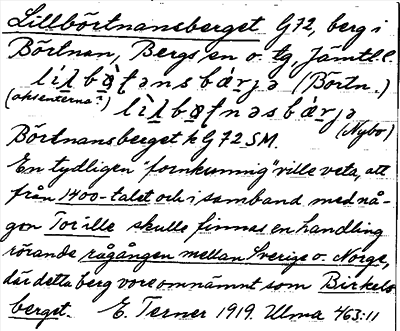 Lillbörtnansberget G72, berg i
Börtnan, Bergs sn o. tg, Jämtl. l.
(Börtn.)
(aksenterna?)
(Nybo)
Börtnansberget k G72SM.
En tydligen "fornkunnig" ville veta, att
från 1400-talet och i samband med nå-
gon Tor'ille skulle finnas en handling
rörande rågången mellan Sverige o. Norge,
där detta berg vore omnämnt som Birkels
berget. E. Terner 1919. Ulma 463:11